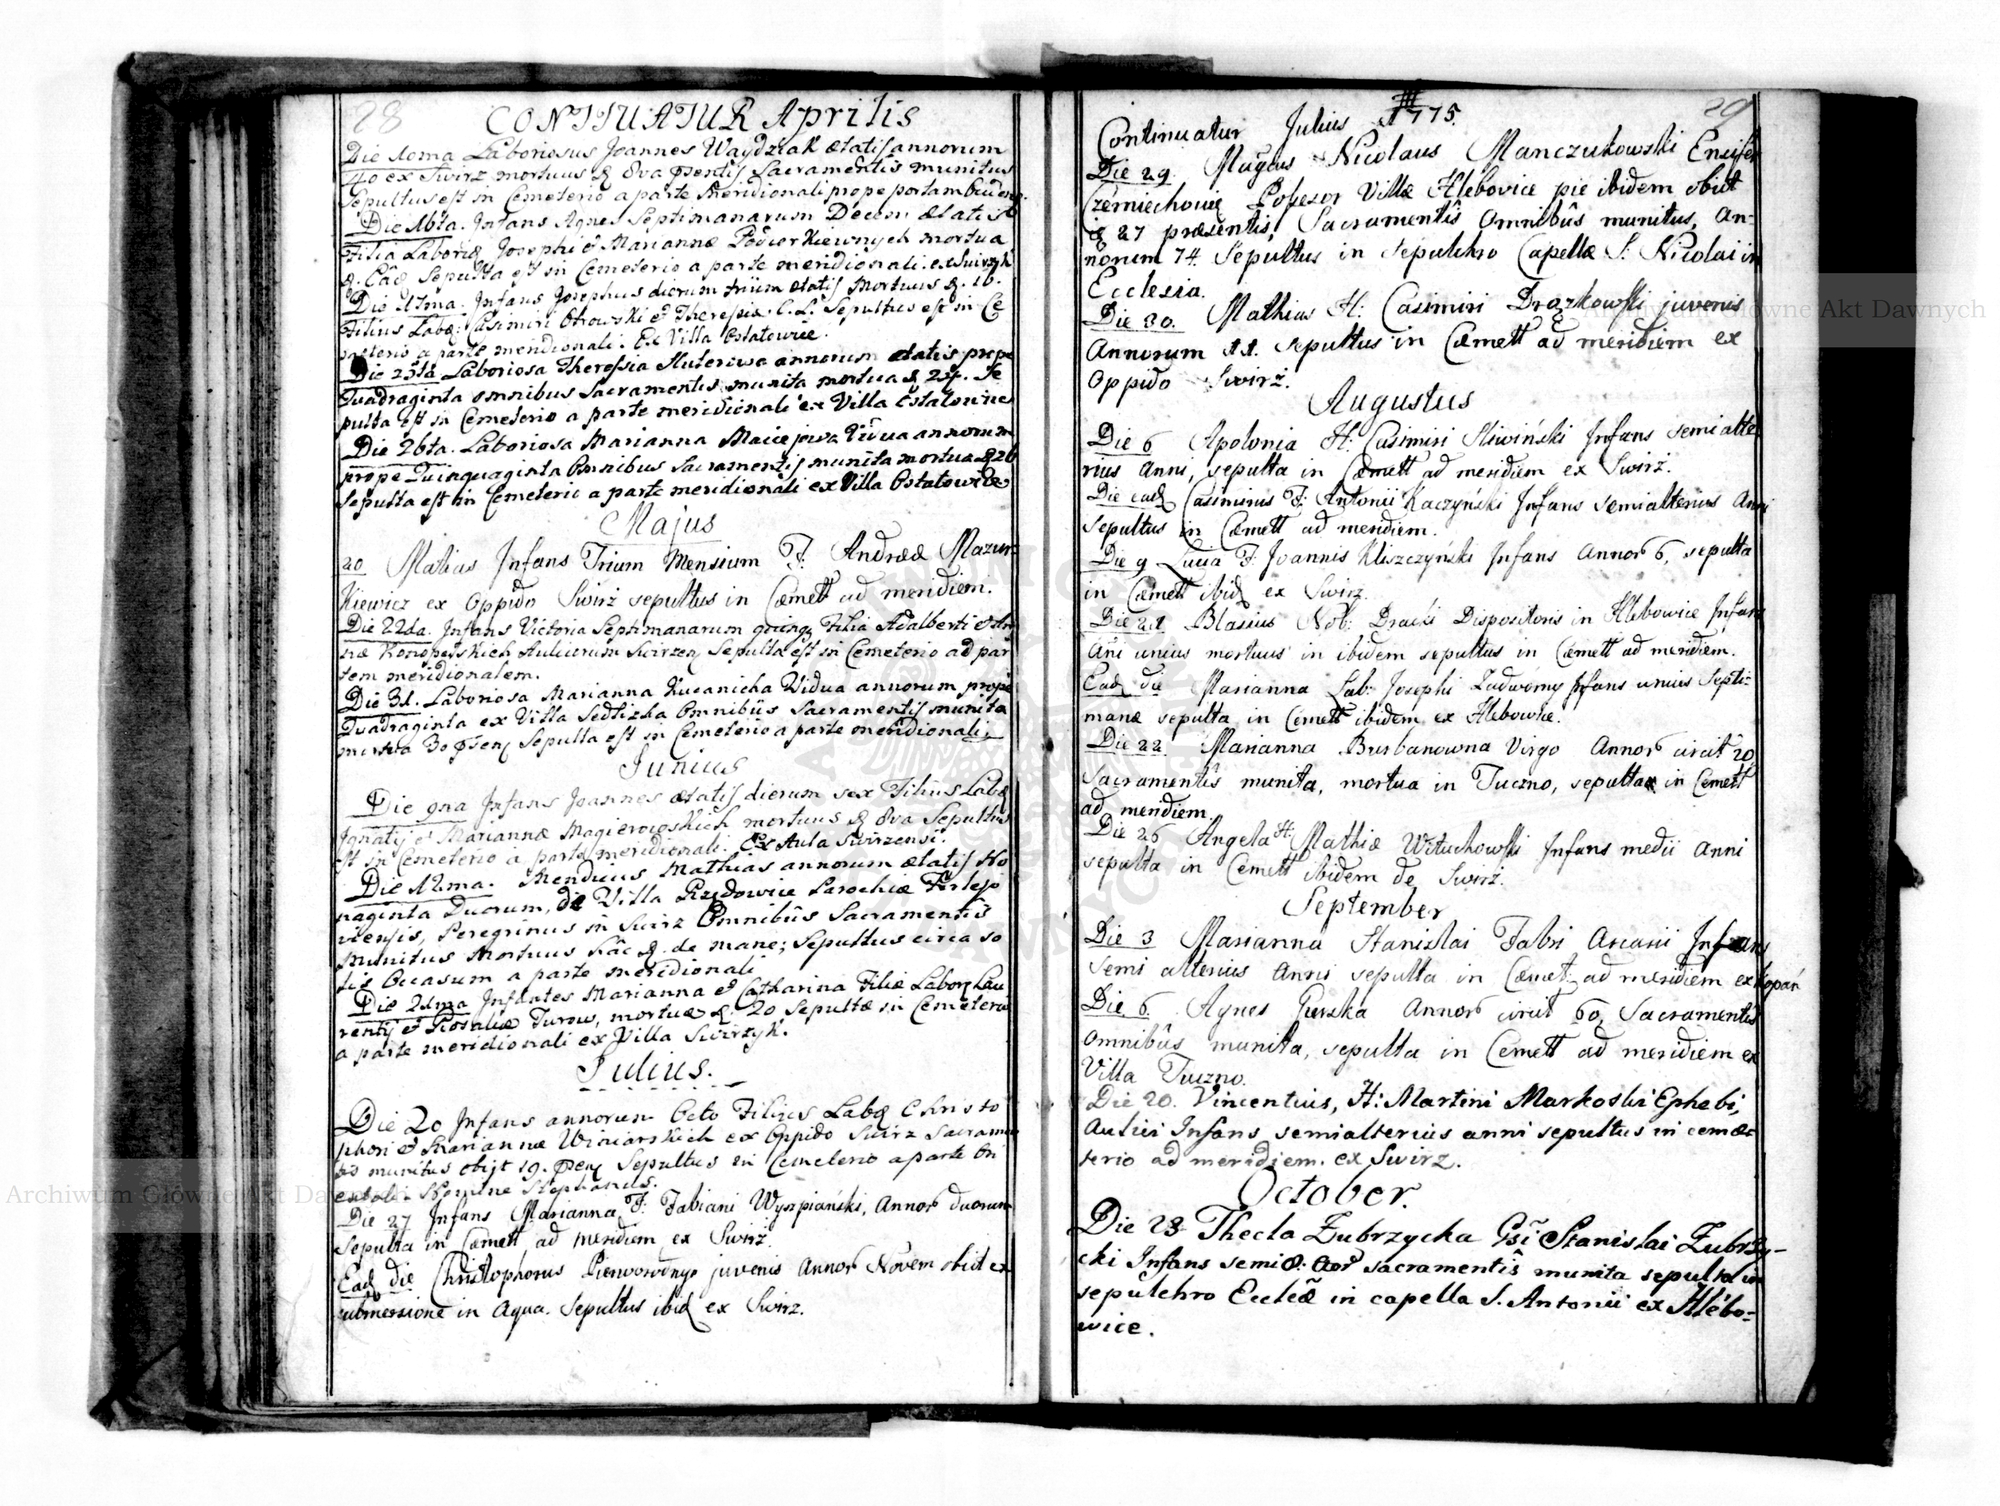 28
CONTIUATUR Aprilis
Die 10ma Laboriosus Joannes Waydziak ætatis annorum
40 ex Swirz mortuus 8va Sacramentis munitus
Sepultus est in Cemeterio a parte Meridionali prope portam
Die 16ta. Infans Agnes Septimanarum Decem ætatis
Filia Josephi et Mariannæ mortua
Sepulta est in Cemeterio a parte meridionali. ex Swirzyk
Die 17ma. Infans Josephus dierum trium ætatis Mortuus 16.
Filius Casimiri et Theresiæ C. L. Sepultus est in Ce
meterio a parte meridionali. Ex Villa Ostatowice.
Die 25ta Laboriosa Theressia annorum ætatis prope
Quadraginta omnibus Sacramentis munita mortua Se
pulta est in Cemeterio a parte meridionali ex Villa
Die 26ta. Laboriosa Marianna Maciejowa Vidua annorum
prope Quinquaginta Omnibus Sacramentis munita mortua
Sepulta est in Cemeterio a parte meridionali ex Villa Ostatowice
Majus
20 Matias Infans Trium Mensium F. Andreæ Mazur
kiewicz ex Oppido Swirz sepultus in Cæmett ad meridiem.
Die 22da. Infans Victoria Septimanarum Filia Adalberti et An
næ Sepulta est in Cemeterio ad par
tem meridionalem.
Die 31. Laboriosa Marianna Vidua annorum prope
Quadraginta ex Villa Omnibus Sacramentis munita
mortua 30 Sepulta est in Cemeterio a parte meridionali.
Junius
Die 9na Infans Joannes ætatis dierum sex Filius
Ignatij et Mariannæ mortuus 8va Sepultus
est in Cemeterio a parte meridionali. Ex Aula Swirzensi.
Die 12ma. Mendicus Mathias annorum ætatis No
naginta Duorum, de Villa Parochiæ
Peregrinus in Swirz Omnibus Sacramentis
munitus Mortuus de mane; Sepultus circa so
lis Occasum a parte meridionali
Die 21ma Infantes Marianna et Catharina Filiæ Lau
rentij et Rosaliæ Turow, mortuæ 20 Sepultæ in Cemeterio
a parte meridionali ex Villa Swirzyk.
Julius.
Die 20 Infans annorum Octo Filius Christo
phori et Mariannæ Winiarskich ex Oppido Swirz Sacramen
tis munitus obijt 19. Sepultus in Cemeterio a parte Ori
entali Nomine Stephanus.
Die 27 Infans Marianna F: Fabiani Wyspiański, Annor duorum
Sepulta in Cæmett ad meridiem ex Swirż.
Ead die Christophorus juvenis Annor Novem obiit ex
submersione in Aqua. Sepultus ibid ex Swirz.
29
Continuatur Julius 1775.
Die 29. Nicolaus Manczukowski Ensifer
Villæ Hlebovice pie ibidem obiit
27 præsentis, Sacramentis Omnibûs munitus, An-
norum 74 Sepultus in Sepulchro Capellæ S. Nicolai in
Ecclesia.
Die 30. Mathias H: Casimiri juvenis
Annorum 11. Sepultus in Cæmett ad meridiem ex
Oppido Swirż.
Augustus
Die 6 Apolonia H: Casimiri Sliwiński Infans semi alte
rius Anni, sepulta in Cæmett ad meridiem ex Swirż.
Die ead Casimirus F: Antonii Kaczyński Infans semialterius Anni
Sepultus in Cæmett ad meridiem.
Die 9 Lucia F. Joannis Kliszczyński Infans Annor 6, sepulta
in Cæmett ibid ex Swirż.
Die 21 Blasius Nob: Dispositoris in Hlebowice Infans
Ani unius mortuus in ibidem sepultus in Cæmett ad meridiem.
Ead die Marianna Lab: Josephi Infans unius Septi-
manæ sepulta in Cemett ibidem ex Hlebowice.
Die 22. Marianna Burbanowna Virgo Annor circit 20
Sacramentîs munita, mortua in Tuczno, sepulta in Cemett
ad meridiem.
Die 26 Angela H: Mathiæ Infans medii Anni
sepulta in Cemett ibidem de Swirż.
September
Die 3 Marianna Stanislai Fabri Infans
semi alterius Anni sepulta in Cæmet ad meridiem ex
Die 6. Agnes Annor circit 60, Sacramentis
Omnibûs munita, sepulta in Cemett ad meridiem ex
Villa Tuczno.
Die 20. Vincentius, H: Martini Markoski Ephebi,
Aulici Infans semialterius anni sepultus in cemæ-
terio ad meridiem. ex Swirz.
October.
Die 23 Thecla Zubrzycka Stanislai Zubrzy-
cki Infans sacramentîs munita sepulta in
sepulchro in capella S. Antonii ex Hlébo-
wice.
Archiwum Główne Akt Dawnych
Archiwum Główne Akt Dawnych